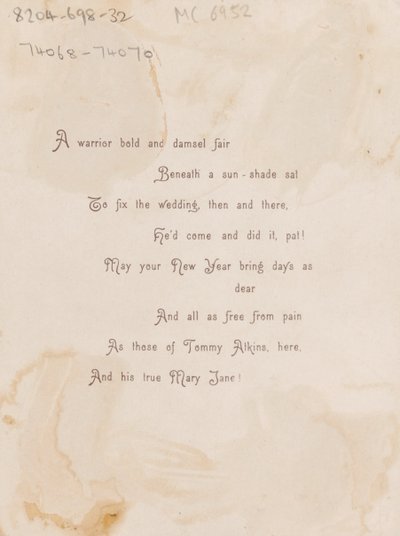 8204-698-32
MC 6952
74068-74070
A warrior bold and damsel fair
Beneath a sun-shade sat
To fix the wedding, then and there,
He'd come and did it, pat!
May your New Year bring days as
dear
And all as free from pain
As those of Tommy Atkins, here,
And his true Mary Jane!